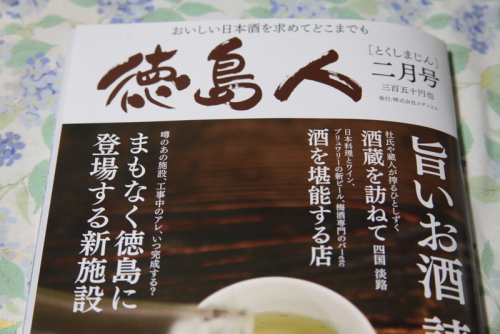 おいしい日本酒を求めてどこまでも
徳島人
［とくしまじん］
二月号
三百五十円也
発行/株式会社メディコム
旨いお酒
杜氏や蔵人が搾るひとしずく
酒蔵を訪ねて 四国 淡路
日本料理とワイン、
ブリュワリーの新ビール、梅酒専門のバー etc
酒を堪能する店
噂のあの施設、工事中のアレ、いつ完成する?
まもなく徳島に
登場する新施設